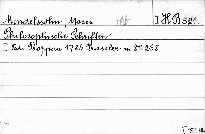 Mendelssohn, Moses I H B 521.
Philosophische Schriften
I Ed. Troppau 1785 Trassler m 8° 268